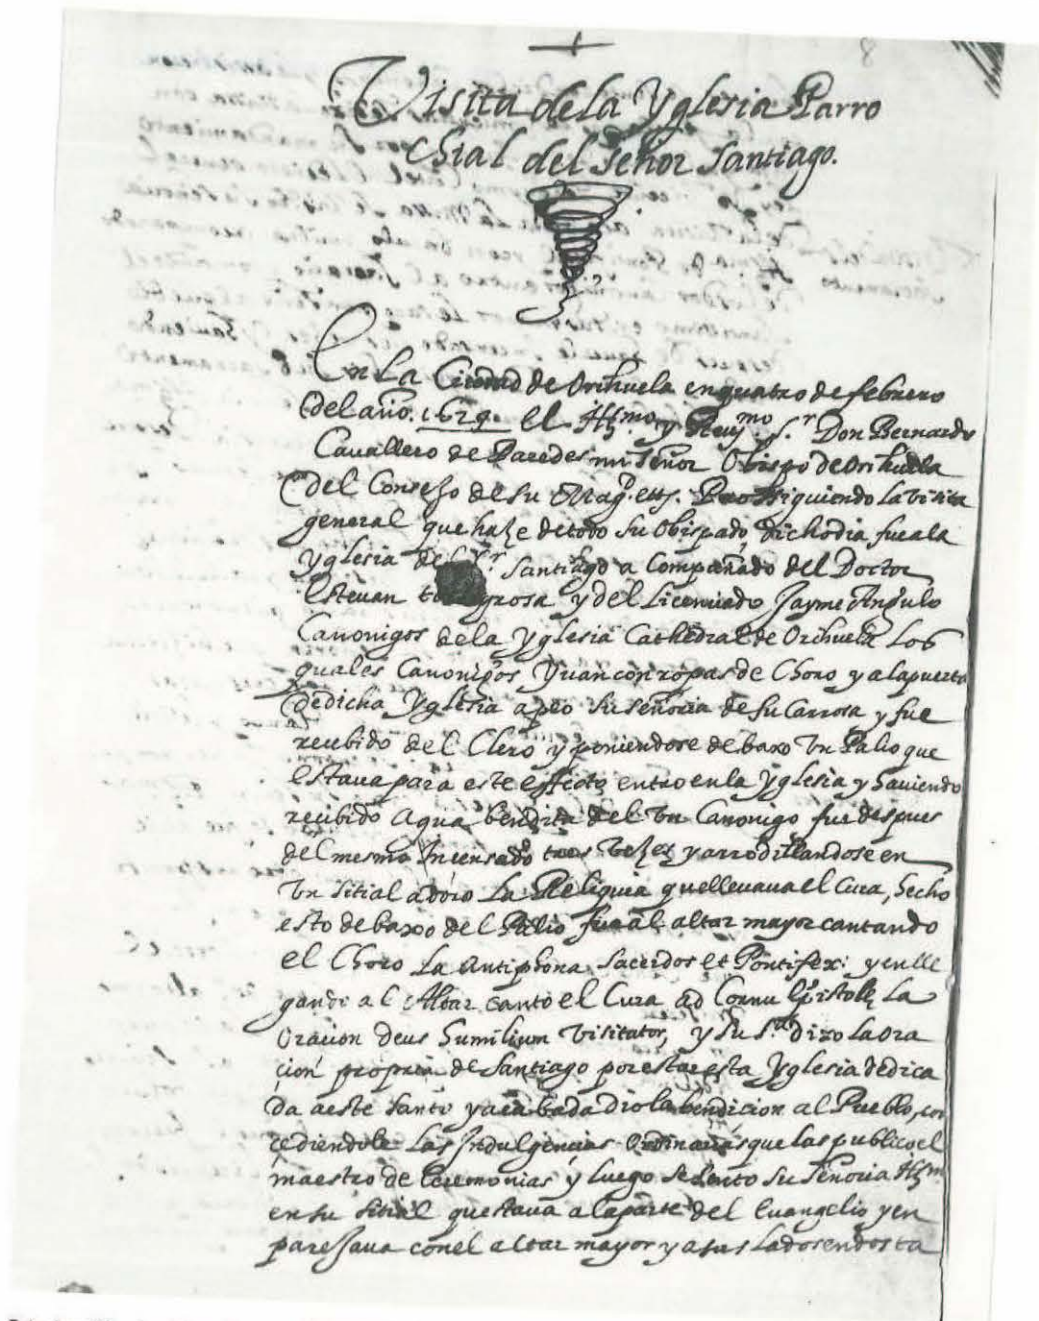 8
Visita dela Yglesia Parro
chial del señor Santiago.
En La Ciudad de Orihuela en quatro de febrero
del año. 1629. el Illmo. y Reumo. s.r Don Bernardo
Cauallero de Paredes mi señor Obispo de Orihuela
del Consejo de su Magd. etts. Prosiguiendo la visita
general que haze de todo su Obispado, dicho dia fue ala
Yglesia del Sr Santiago a Compañado del Doctor
Esteuan grosa y del Licenciado Jayme Angulo
Canonigos dela Yglesia Cathedral de Orihuela Los
quales Canonigos Yuan con ropas de Choro y ala puerta
de dicha Yglesia apeo su señoria de su Carrosa y fue
recibido del Clero y poniendose debaxo Un Palio que
estaua para este effecto, entro en la Yglesia y hauiendo
recibido Agua bendita del Un Canonigo fue despues
del mesmo Incensado tres Vezes y arrodillandose en
Un sitial adoro La Reliquia que lleuaua el Cura, hecho
esto debaxo del Palio fue al altar mayor cantando
el Choro La antiphona Sacerdos et Pontifex: y enlle
gando al Altar canto el Cura ad Cornu Epistolę La
Oracion Deus humilium Visitator, y su s.a dixo la ora
cion propria de Santiago por estar esta Yglesia dedica
da a este santo y acabada dio la bendicion al Pueblo, con
cediendole Las Indulgencias Ordinarias que las publico el
maestro de Ceremonias y luego se sento su señoria Illm
en su sitial que staua a la parte del Euangelio y en
parejaua con el altar mayor y a sus Lados en dos ta